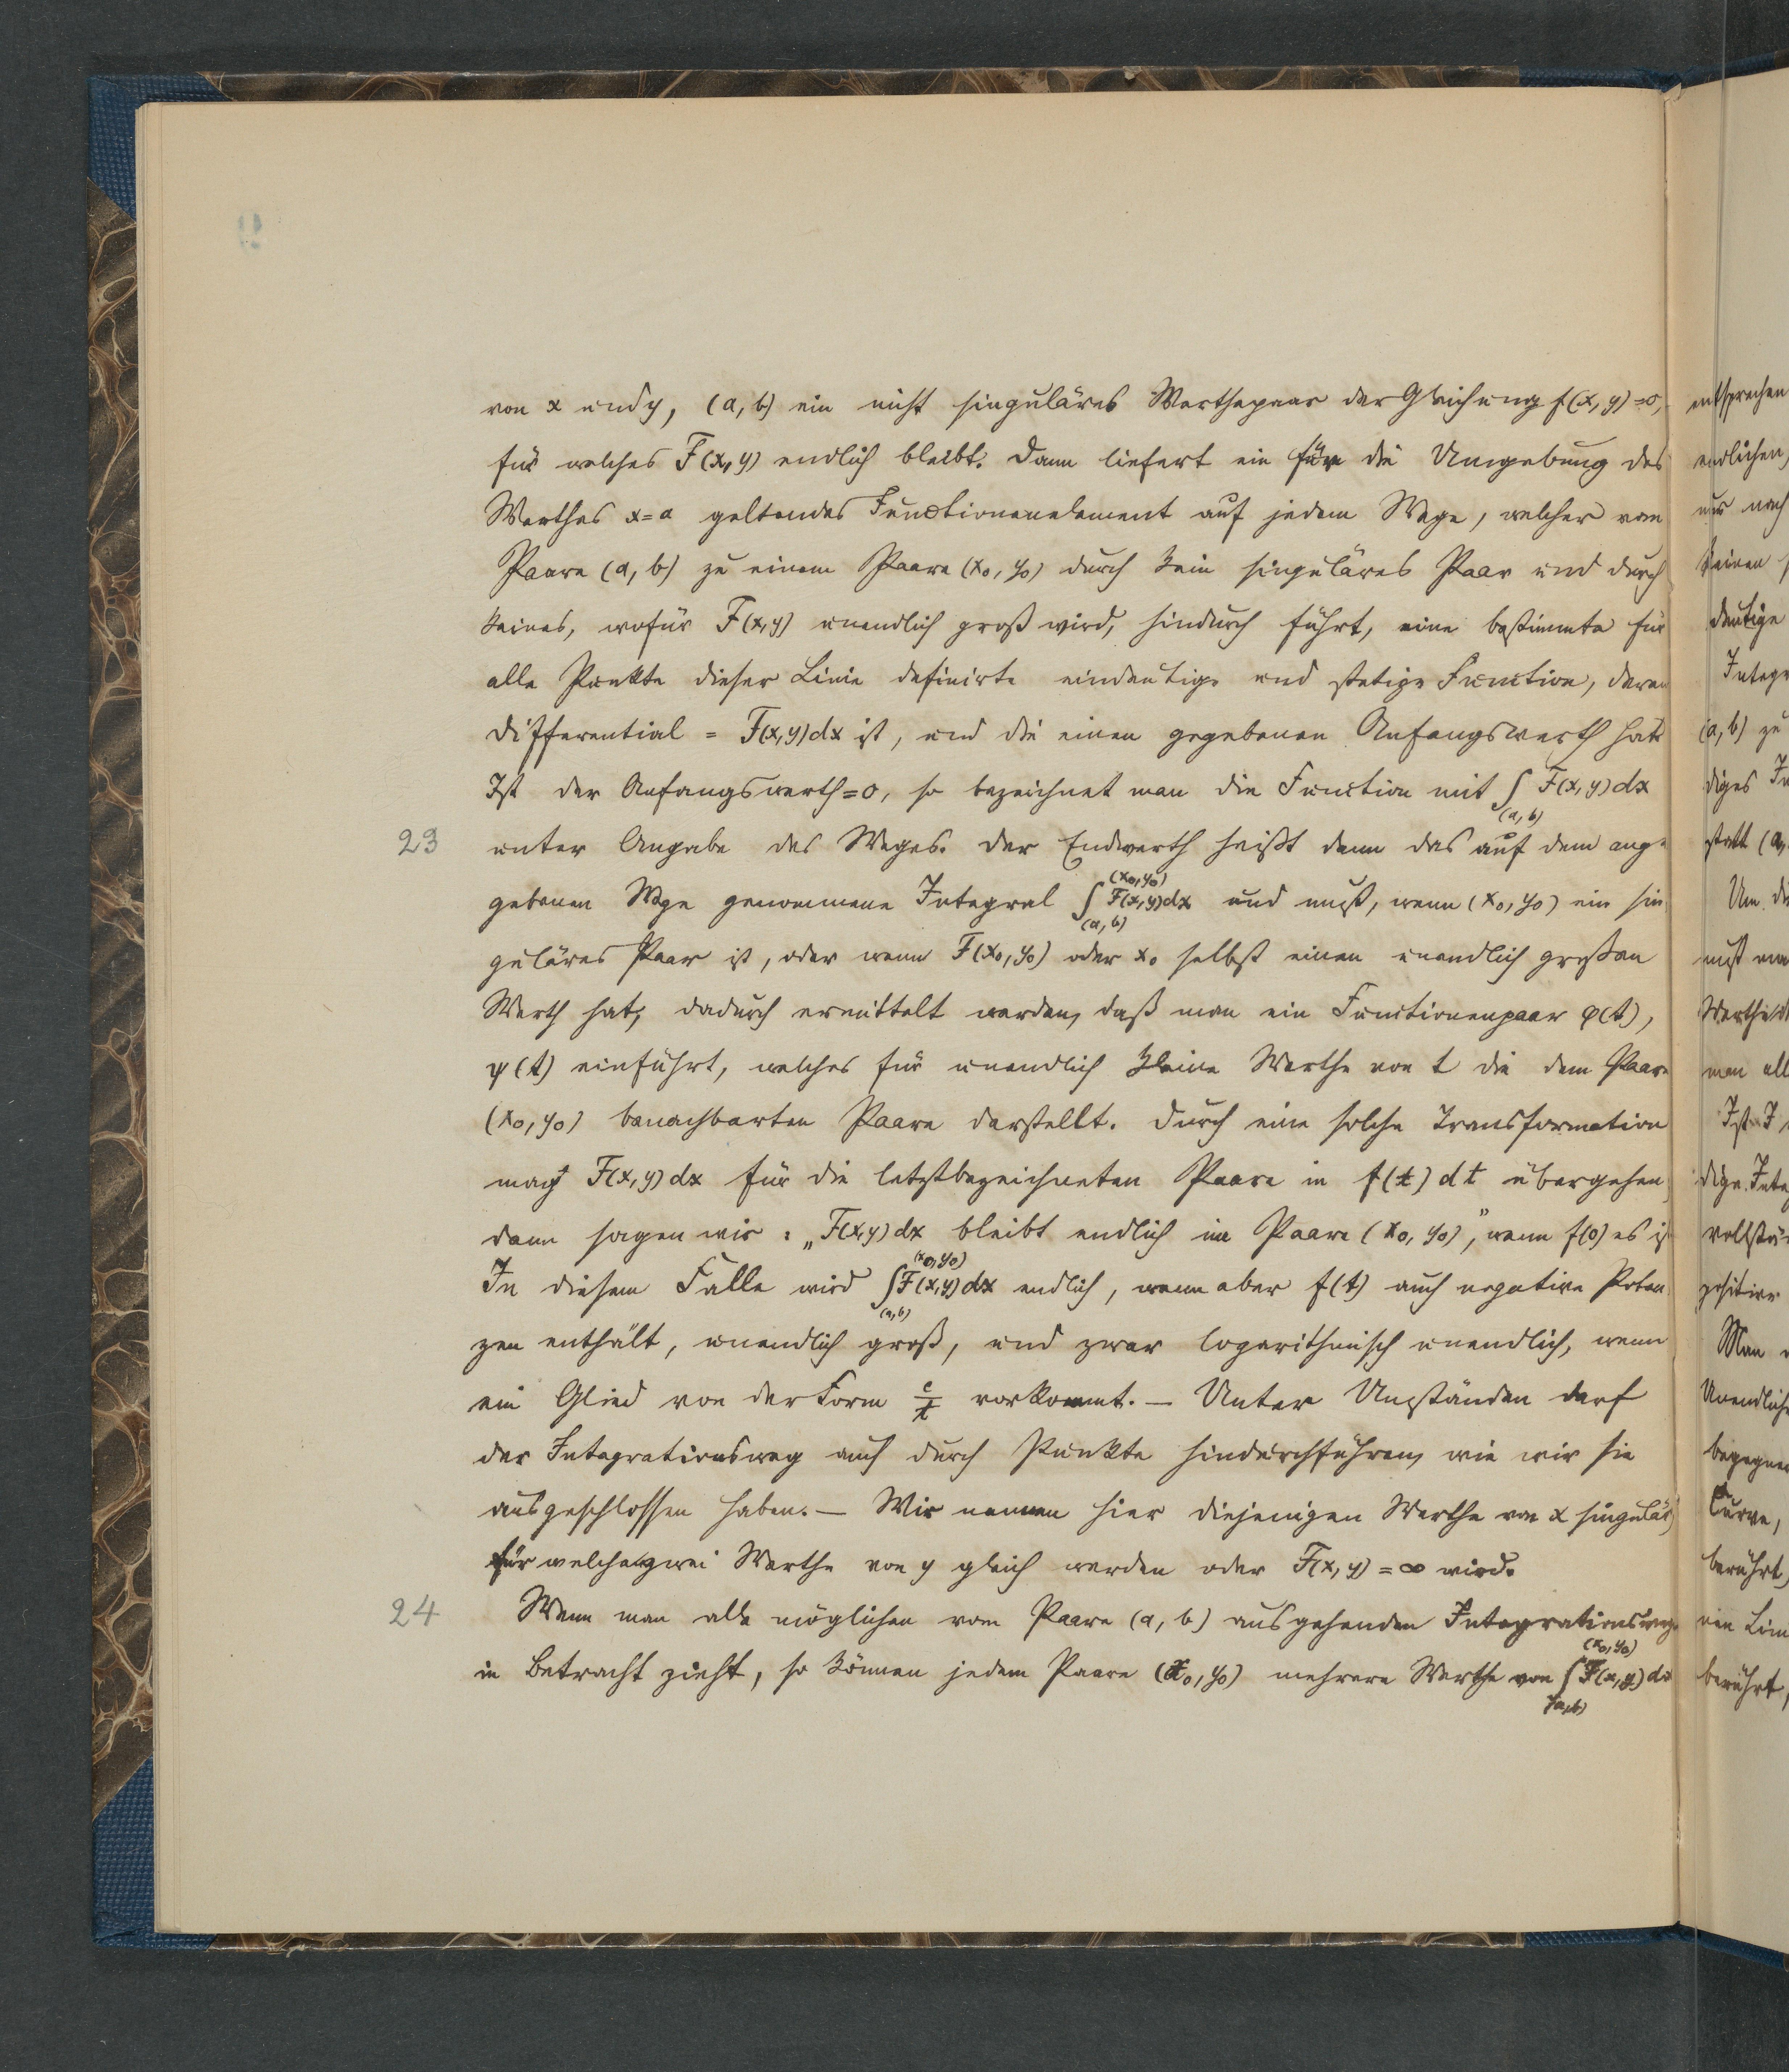 von x und y, (a, b) ein nicht singuläres Werthepaar der Gleichung f(x, y) = 0,
für welches F(x, y) endlich bleibt. Dann liefert ein für die Umgebung des
Werthes x = a geltendes Functionenelement auf jedem Wege, welcher vom
Paare (a, b) zu einem Paare (x₀, y₀) durch kein singuläres Paar und durch
keines, wofür F(x, y) unendlich groß wird, hindurch führt, eine bestimmte für
alle Punkte dieser Linie definirte eindeutige und stetige Function, deren
Differential = F(x, y) dx ist, und die einen gegebenen Anfangswerth hat.
Ist der Anfangswerth = 0, so bezeichnet man die Function mit ∫_(a, b) F(x, y) dx
23 unter Angabe des Weges. Der Endwerth heißt dann das auf dem ange-
gebenen Wege genommene Integral ∫_(a, b)^(x₀, y₀) F(x, y) dx und muß, wenn (x₀, y₀) ein sin-
guläres Paar ist, oder wenn F(x₀, y₀) oder x₀ selbst einen unendlich großen
Werth hat, dadurch ermittelt werden, daß man ein Functionenpaar φ(t),
ψ(t) einführt, welches für unendlich kleine Werthe von t die dem Paare
(x₀, y₀) benachbarten Paare darstellt. Durch eine solche Transformation
mag F(x, y) dx für die letztbezeichneten Paare in f(t) dt übergehen,
dann sagen wir: „F(x, y) dx bleibt endlich im Paare (x₀, y₀)," wenn f(0) es ist
In diesem Falle wird ∫_(a, b)^(x₀, y₀) F(x, y) dx endlich, wenn aber f(t) auch negative Poten-
zen enthält, unendlich groß, und zwar logarithmisch unendlich, wenn
ein Glied von der Form c/t vorkommt. — Unter Umständen darf
der Integrationsweg auch durch Punkte hindurchführen, wie wir sie
ausgeschlossen haben. — Wir nennen hier diejenigen Werthe von x singulär,
für welche zwei Werthe von y gleich werden oder F(x, y) = ∞ wird.
24 Wenn man alle möglichen vom Paare (a, b) ausgehenden Integrationswege
in Betracht zieht, so können jedem Paare (x₀, y₀) mehrere Werthe von ∫_(a, b)^(x₀, y₀) F(x, y) dx
entsprechen
endlichen,
nur noch
keinen
deutige
Integr
(a, b) zu
diges In
statt (a,
Um di
muß man
Werthe d
man all
Ist J
dige Inte
vollstän
positive
Man
Unendliche
begegne
Curve,
berührt,
ein Lim
berührt,